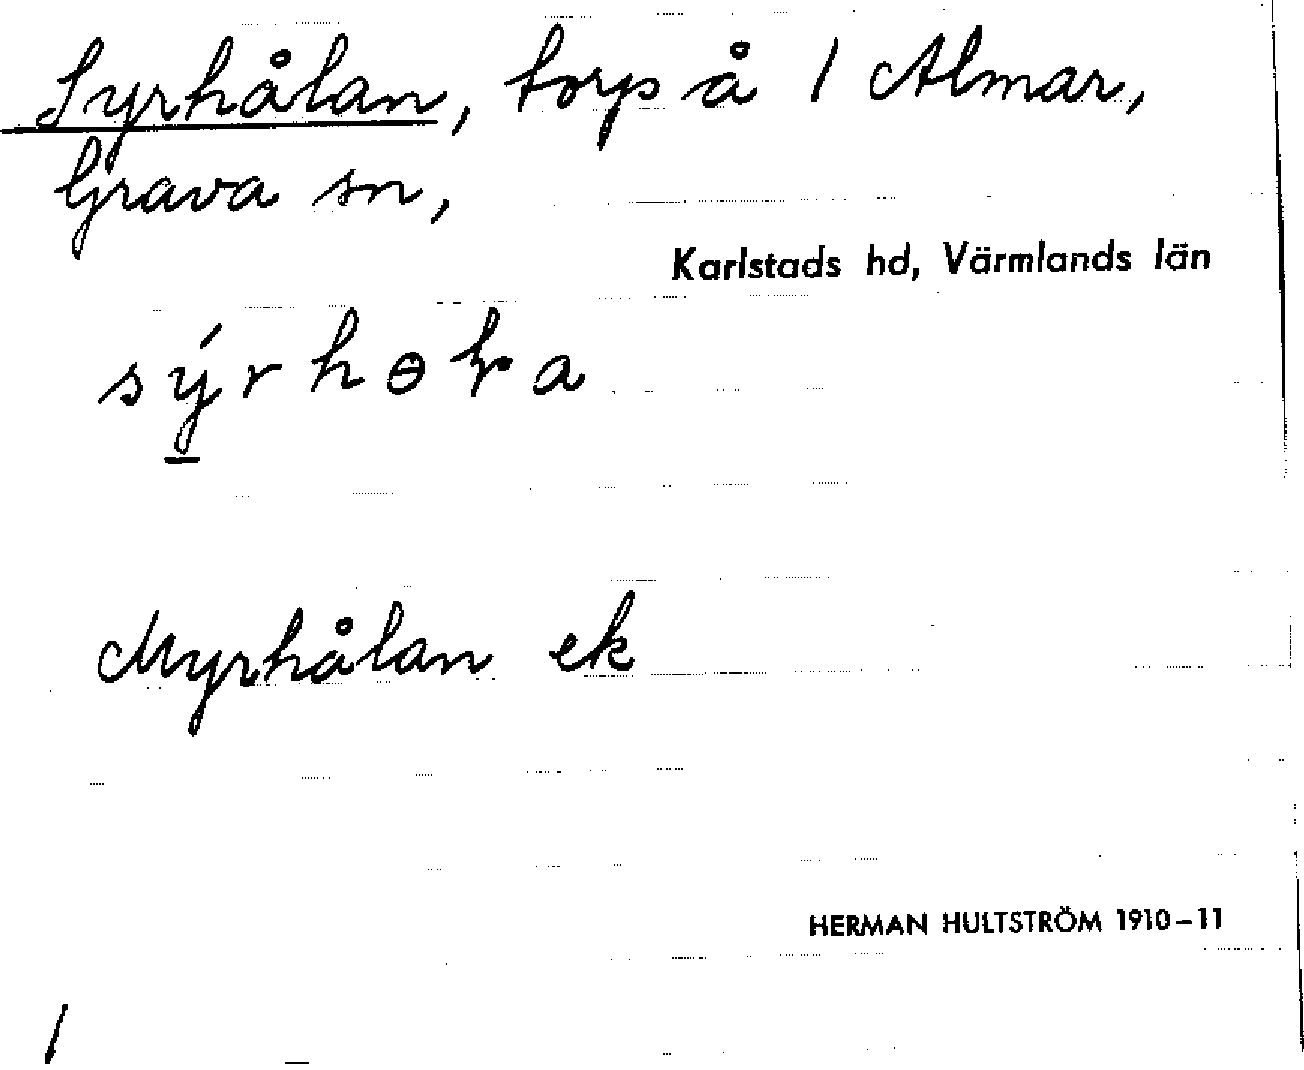 Syrhålan, torp å 1 Almar,
Grava sn,
Karlstads hd, Värmlands län
sýrhɵła
Myrhålan ek
HERMAN HULTSTRÖM 1910–11
1